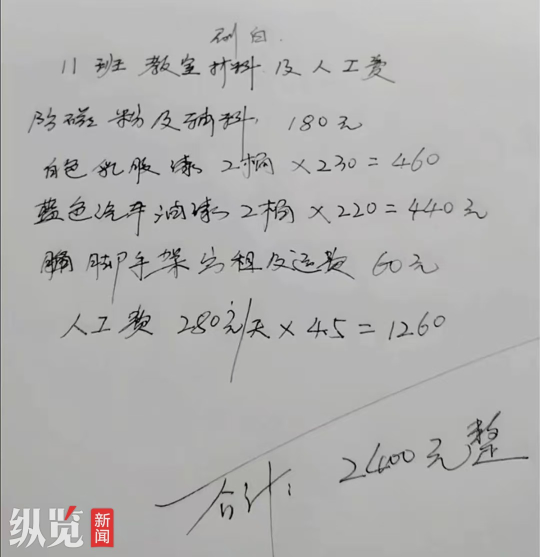 刷白
11班教室材料及人工费
防磁粉及辅料 180元
白色乳胶漆 2桶×230=460
蓝色汽车油漆 2桶×220=440元
脚手架出租及运费 60元
人工费 280元/天×4.5=1260
合计: 2400元整
纵览新闻